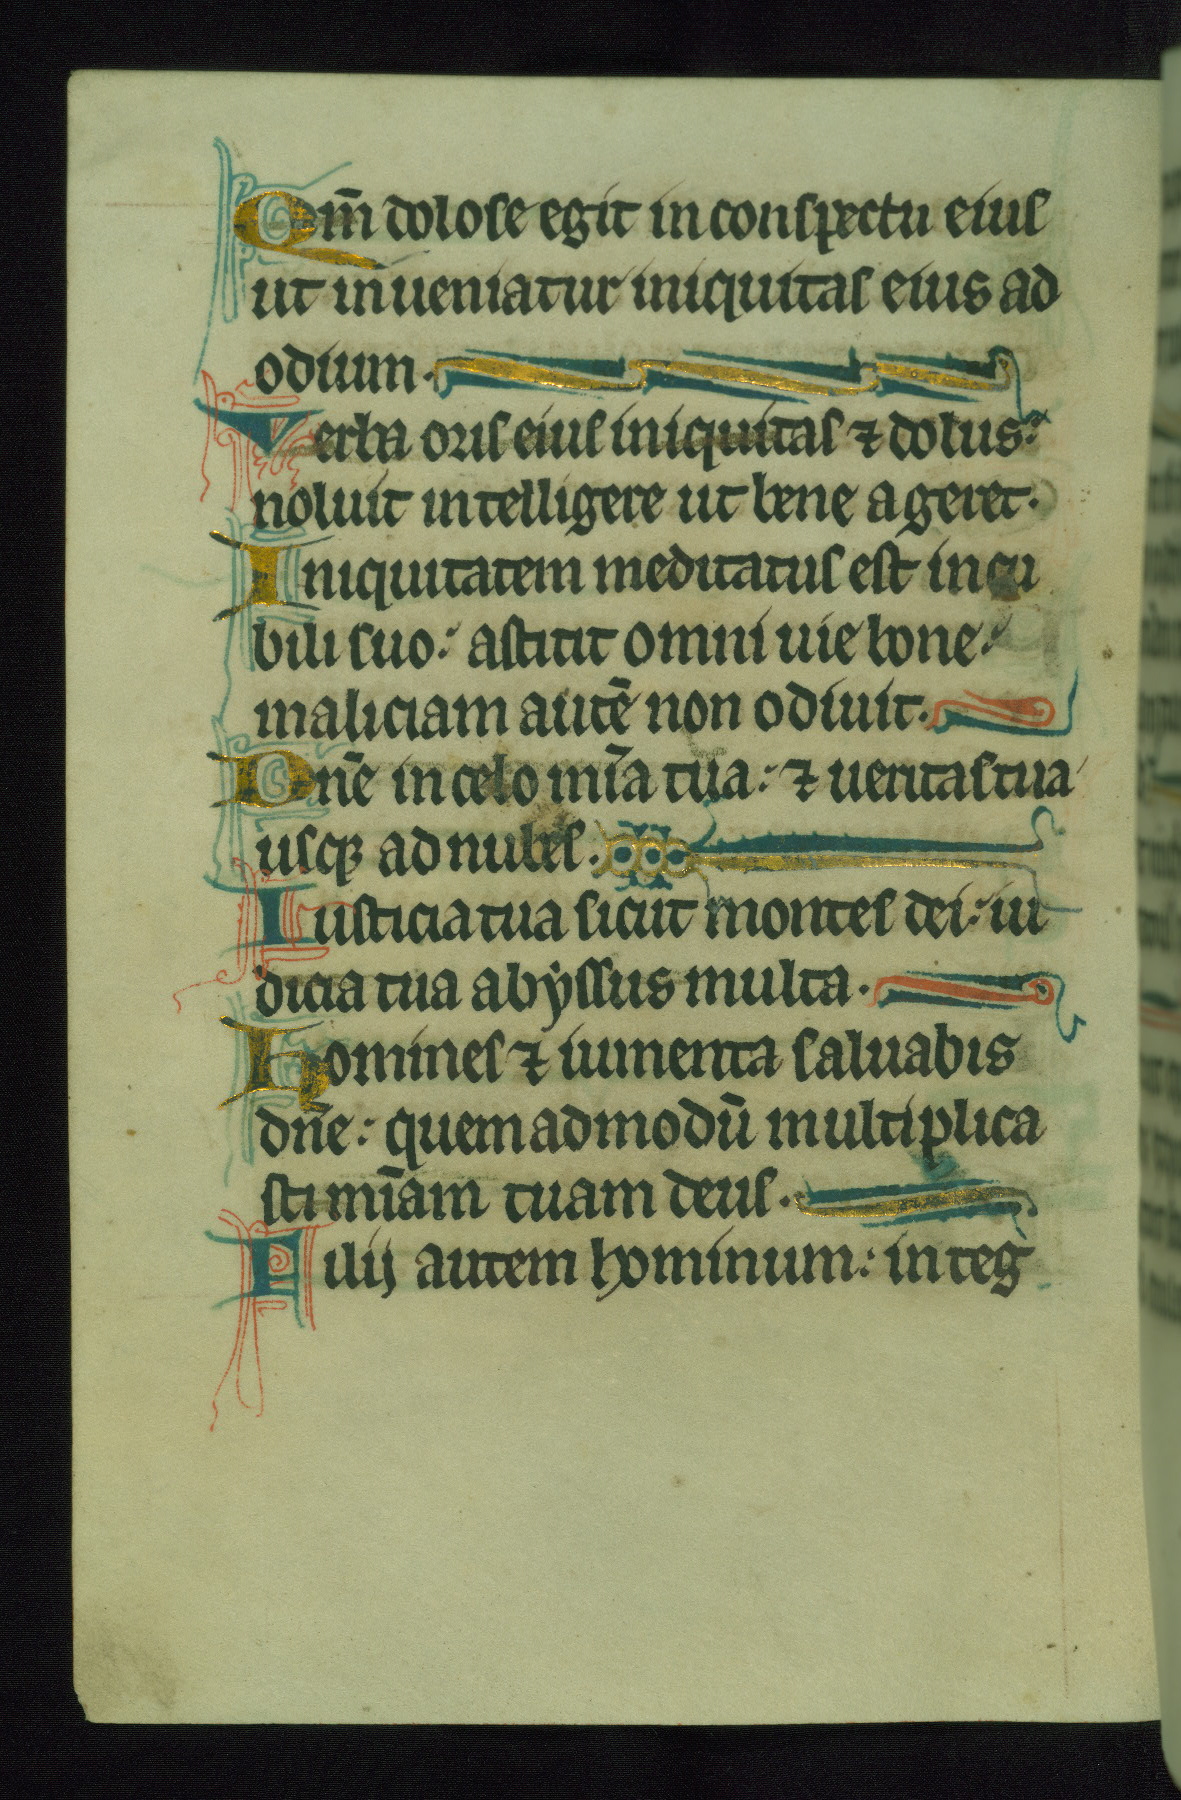 Qm̄ dolose egit in conspectu eius
ut inueniatur iniquitas eius ad
odium.
Verba oris eius iniquitas ⁊ dolus:
noluit intelligere ut bene ageret.
Iniquitatem meditatus est in cu
bili suo: astitit omni uie bone:
maliciam autē non odiuit.
Dn̄e in celo mīa tua: ⁊ ueritas tua
usqꝫ ad nubes.
Iusticia tua sicut montes dei: iu
dicia tua abyssus multa.
Homines ⁊ iumenta saluabis
dn̄e: quemadmodū multiplica
sti mīam tuam deus.
Filij autem hominum: in teg